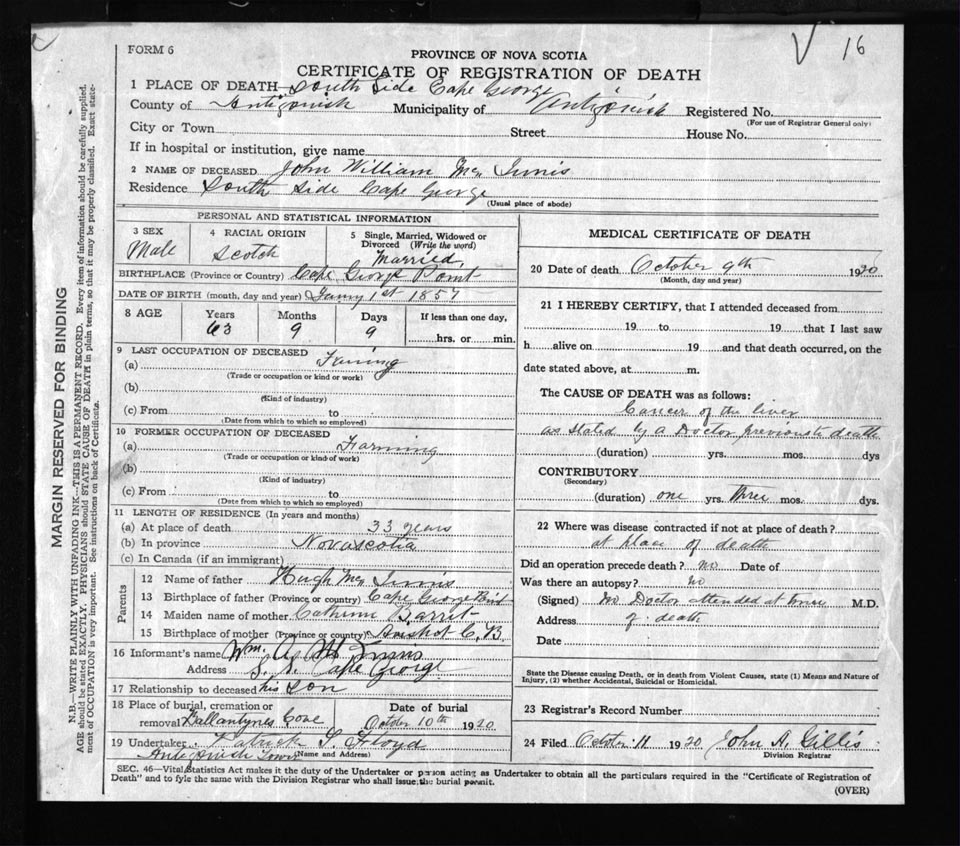 16
FORM 6
PROVINCE OF NOVA SCOTIA
CERTIFICATE OF REGISTRATION OF DEATH
MARGIN RESERVED FOR BINDING
N.B.—WRITE PLAINLY WITH UNFADING INK—THIS IS A PERMANENT RECORD. Every item of information should be carefully supplied.
AGE should be stated EXACTLY. PHYSICIANS should STATE CAUSE OF DEATH in plain terms, so that it may be properly classified. Exact state-
ment of OCCUPATION is very important. See instructions on back of Certificate.
1 PLACE OF DEATH South Side Cape George
County of Antigonish Municipality of Antigonish Registered No.
(For use of Registrar General only)
City or Town Street House No.
If in hospital or institution, give name
2 NAME OF DECEASED John William Mc Innis
Residence South Side Cape George
(Usual place of abode)
PERSONAL AND STATISTICAL INFORMATION
3 SEX 4 RACIAL ORIGIN 5 Single, Married, Widowed or
Divorced (Write the word)
Male Scotch Married
BIRTHPLACE (Province or Country) Cape George Point
DATE OF BIRTH (month, day and year) 1st 1857
8 AGE Years Months Days If less than one day,
63 9 9 hrs. or min.
9 LAST OCCUPATION OF DECEASED
(a)
(Trade or occupation or kind or work)
(b)
(Kind of industry)
(c) From to
(Date from which to which so employed)
10 FORMER OCCUPATION OF DECEASED
(a) Farming
(Trade or occupation or kind of work)
(b)
(Kind of industry)
(c) From to
(Date from which to which so employed)
11 LENGTH OF RESIDENCE (In years and months)
(a) At place of death 33 years
(b) In province Novascotia
(c) In Canada (if an immigrant)
Parents
12 Name of father Hugh Mc Innis
13 Birthplace of father (Province or country) Cape George Point
14 Maiden name of mother
15 Birthplace of mother (Province or country) C. B.
16 Informant's name Wm. A. Mc Innis
Address S. S. Cape George
17 Relationship to deceased his Son
18 Place of burial, cremation or Date of burial
removal Ballantynes Cove October 10th 1920
19 Undertaker Patrick Floyd
(Name and Address)
Antigonish
MEDICAL CERTIFICATE OF DEATH
20 Date of death October 9th 1920
(Month, day and year)
21 I HEREBY CERTIFY, that I attended deceased from
19 to 19 that I last saw
h alive on 19 and that death occurred, on the
date stated above, at m.
The CAUSE OF DEATH was as follows:
Cancer of the liver
as stated by a Doctor previous to death
(duration) yrs. mos. dys
CONTRIBUTORY
(Secondary)
(duration) one yrs. three mos. dys.
22 Where was disease contracted if not at place of death?
at place of death
Did an operation precede death? no Date of
Was there an autopsy? no
(Signed) No Doctor attended at time M.D.
Address of death
Date
State the Disease causing Death, or in death from Violent Causes, state (1) Means and Nature of
Injury, (2) whether Accidental, Suicidal or Homicidal.
23 Registrar's Record Number
24 Filed October 11 1920 John A Gillis
Division Registrar
SEC. 46—Vital Statistics Act makes it the duty of the Undertaker or person acting as Undertaker to obtain all the particulars required in the "Certificate of Registration of
Death" and to fyle the same with the Division Registrar who shall issue the burial permit.
(OVER)